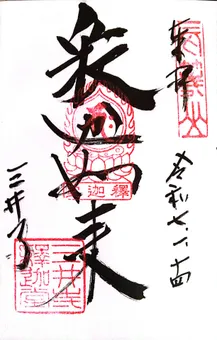 奉拝
令和七.一.十四
釈迦如来
釋迦
三井寺
三井寺
釋迦堂